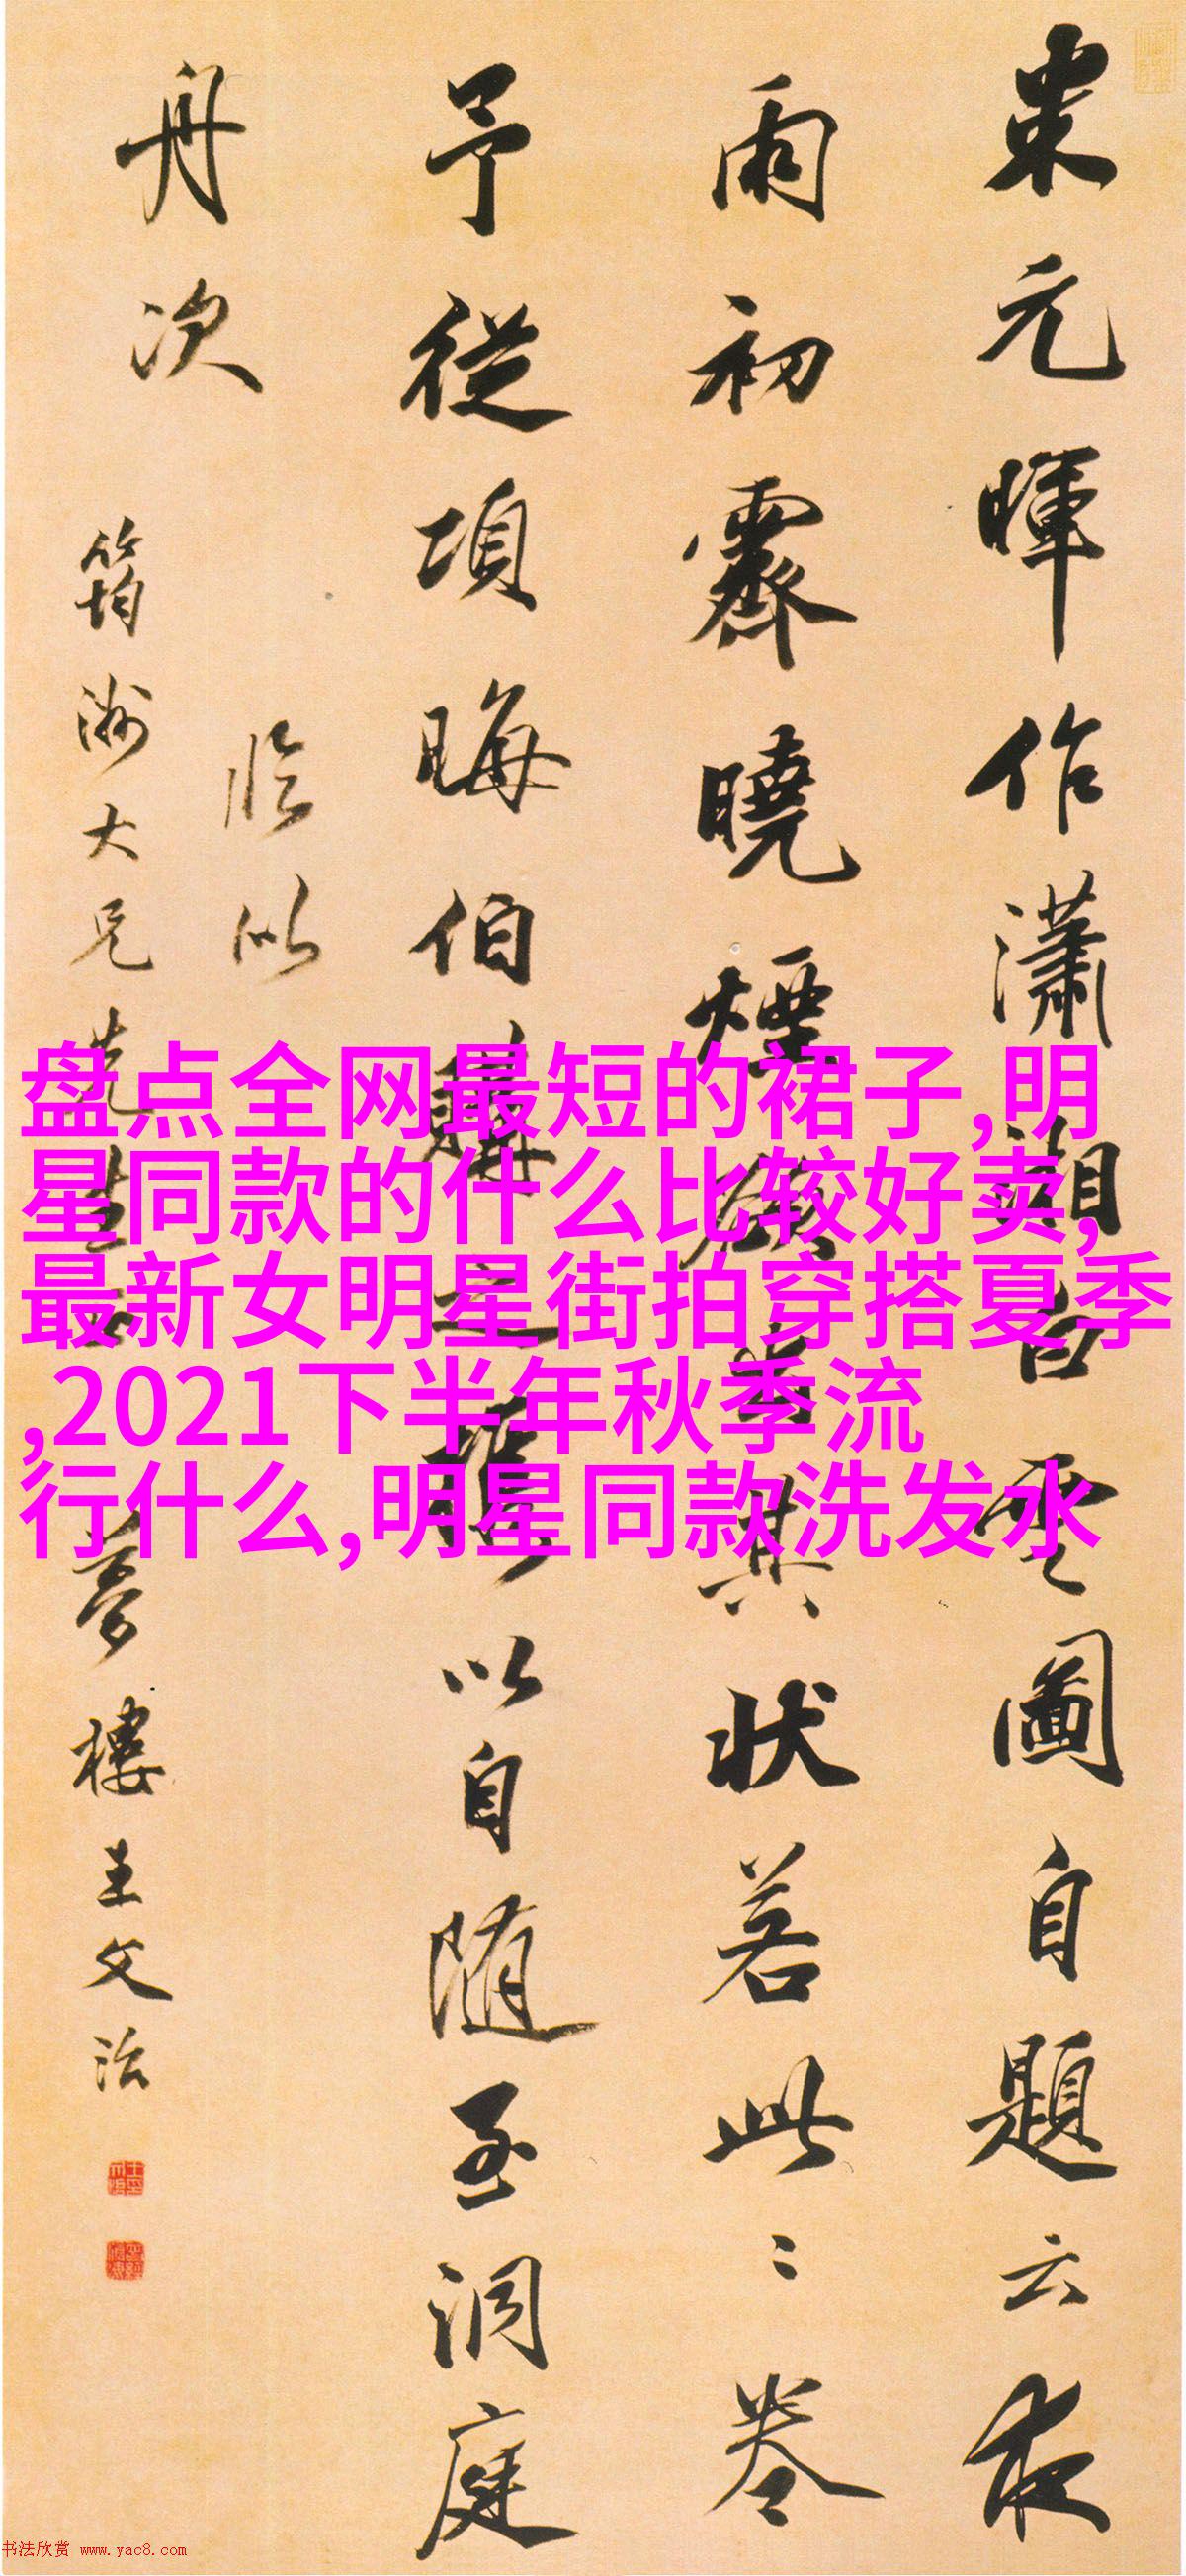 米元暉作瀟湘白雲圖自題云夜
雨初霽曉煙欲出其狀若此〻卷
予從項晦伯購之携以自隨至洞庭
舟次
臨似
筠洲大兄 夢樓王文治
盘点全网最短的裙子,明
星同款的什么比较好卖,
最新女明星街拍穿搭夏季
,2021下半年秋季流
行什么,明星同款洗发水
书法欣赏 www.yac8.com